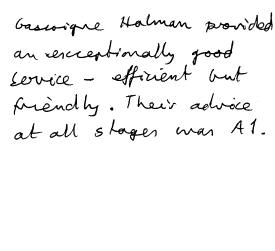 Gascoigne Halman provided
an exceptionally good
service - efficient but
friendly. Their advice
at all stages was A1.